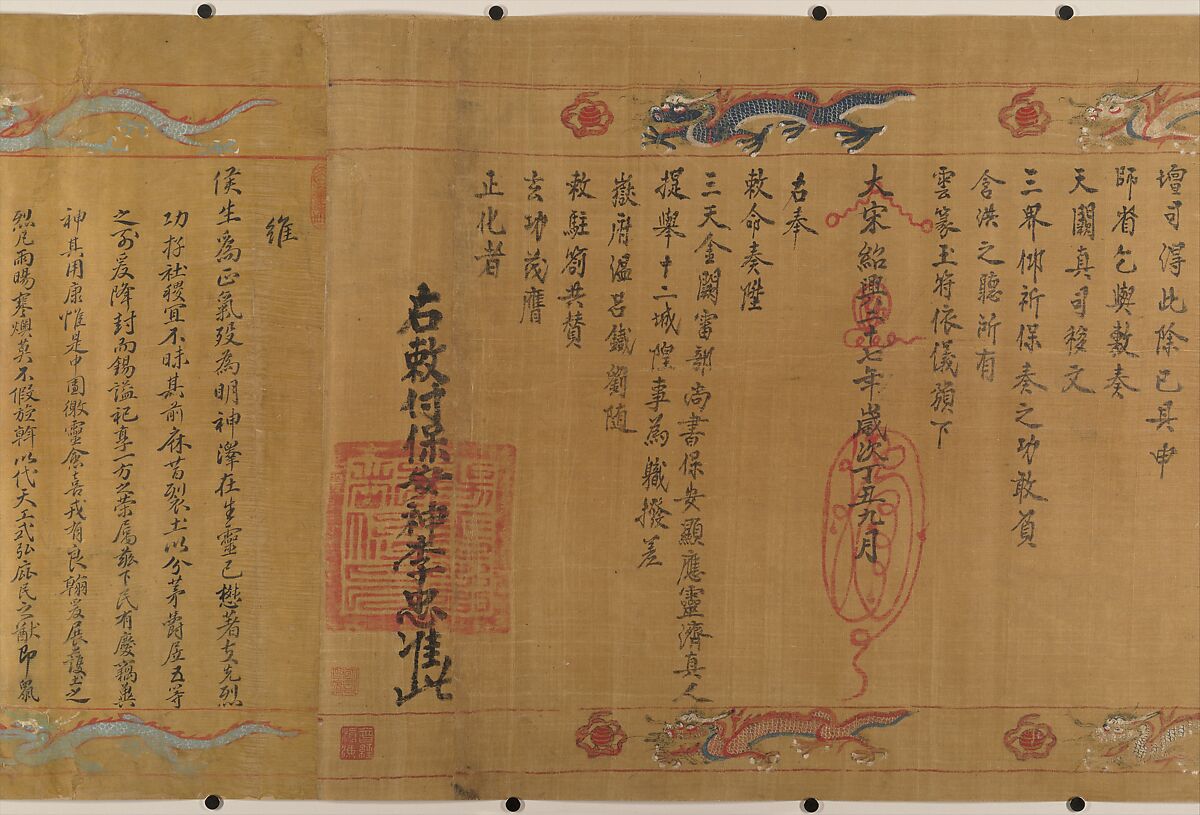 壇司得此除已具申
師省乞與敷奏
天闕真司移文
三界仰祈保奏之功敢負
含洪之聽所有
雲篆玉符依儀頒下
大宋紹興二十七年歲次丁丑九月
右奉
敕命奏陞
三天金闕雷部尚書保安顯應靈濟真人
提舉十二城隍事為職撥差
嶽府溫呂鐵劉隨
敕駐劄共贊
玄功茂膺
正化者
右敕付保安神李忠准此
維
侯生為正氣歿為明神澤在生靈已懋著於先烈
功存社稷宜不昧其前庥昔裂土以分茅爵居五等
之爰降封而錫謚祀享一方之榮屬茲下民有慶竊冀
神其用康惟是中國徼靈僉喜戎有良翰爰展護土之
烈凡雨暘寒燠莫不假旋斡以代天工式弘庇民之猷即